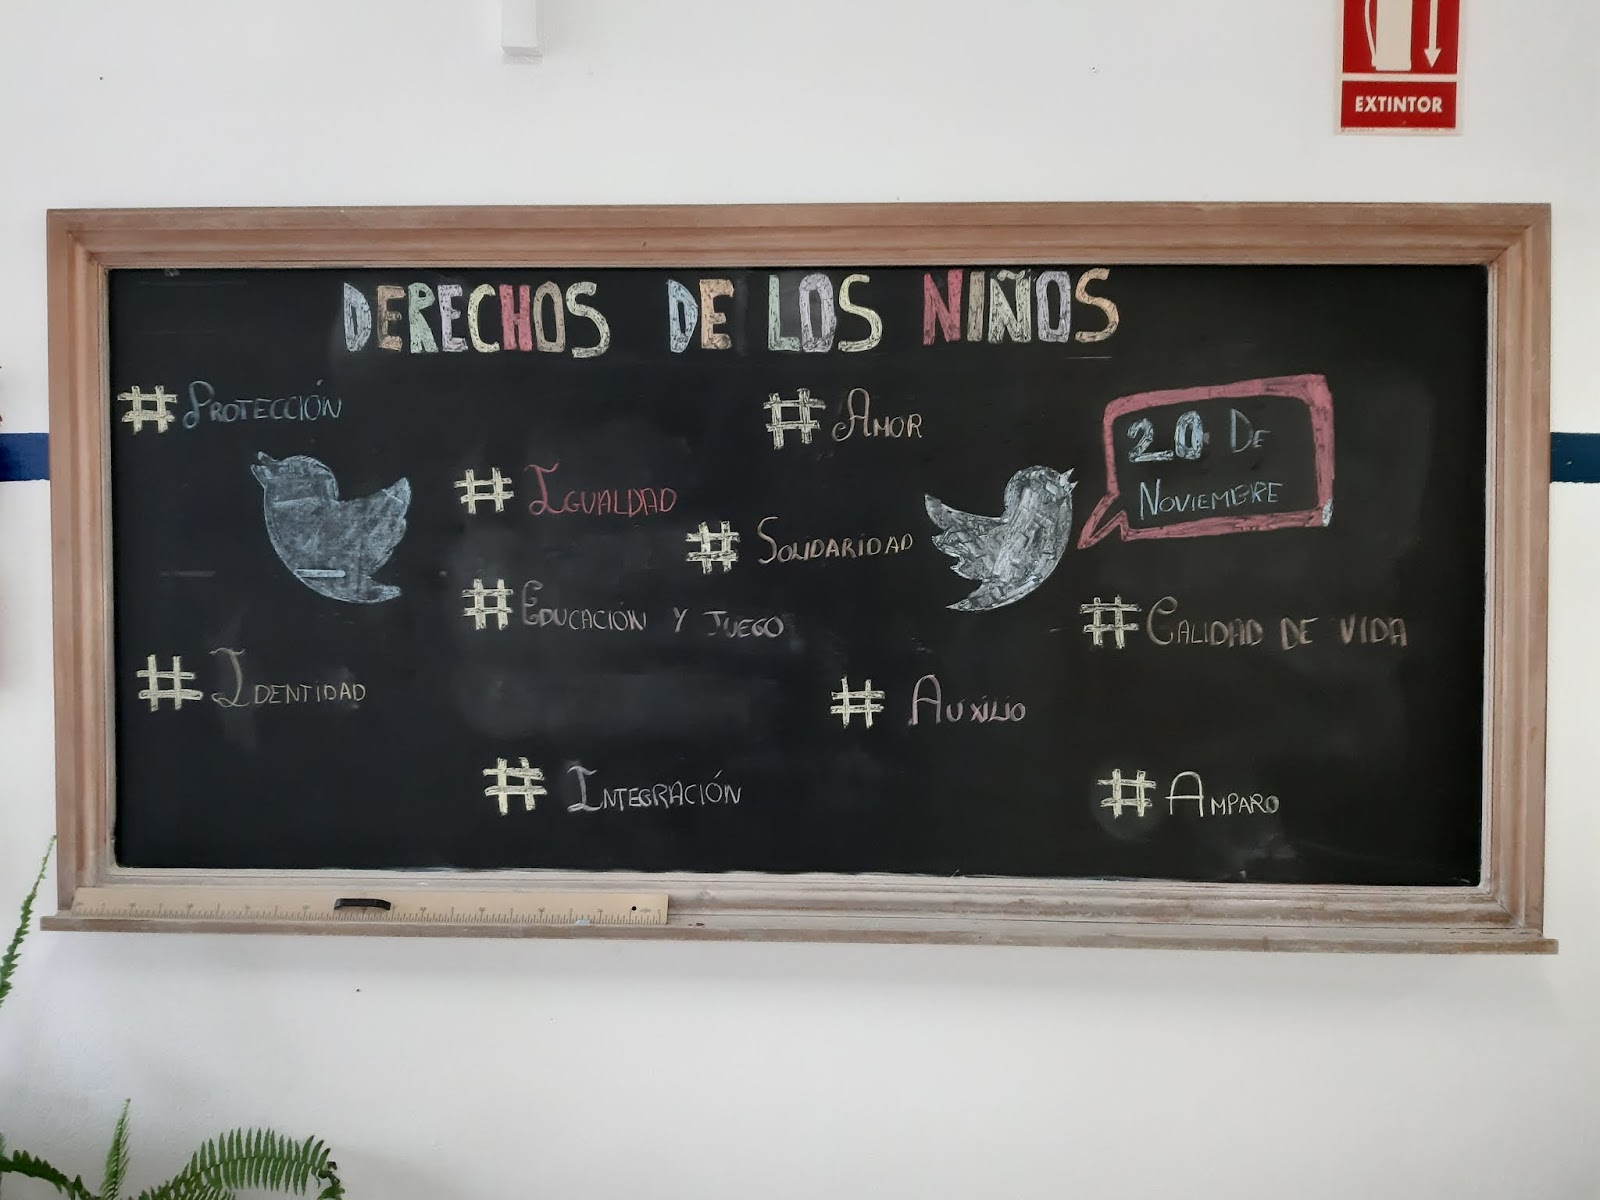 EXTINTOR
DERECHOS DE LOS NIÑOS
# PROTECCIÓN
# AMOR
20 DE
NOVIEMBRE
# IGUALDAD
# SOLIDARIDAD
# EDUCACIÓN Y JUEGO
# CALIDAD DE VIDA
# IDENTIDAD
# AUXILIO
# INTEGRACIÓN
# AMPARO